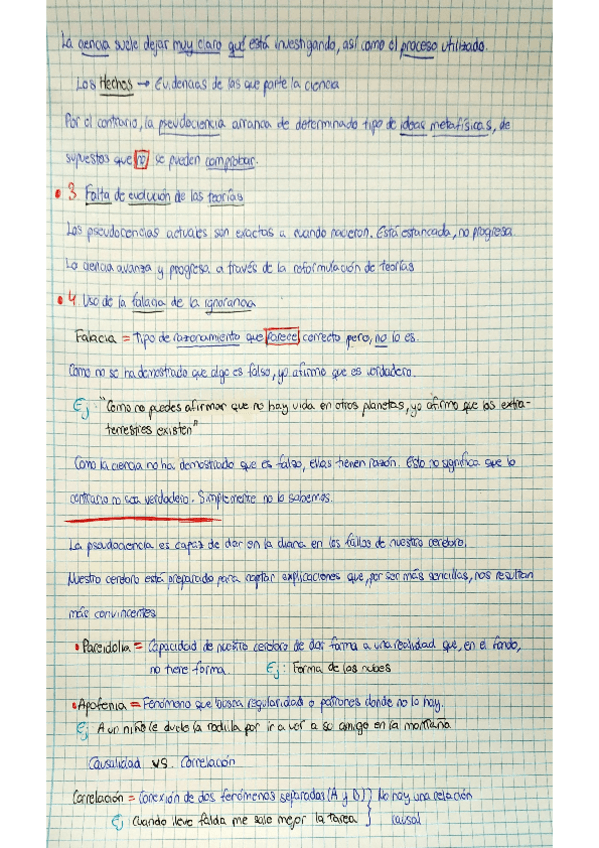 La ciencia suele dejar muy claro qué está investigando, así como el proceso utilizado.
Los Hechos → Evidencias de las que parte la ciencia
Por el contrario, la pseudociencia arranca de determinado tipo de ideas metafísicas, de
supuestos que no se pueden comprobar.
• 3. Falta de evolución de las teorías
Las pseudociencias actuales son exactas a cuando nacieron. Está estancada, no progresa
La ciencia avanza y progresa a través de la reformulación de teorías
• 4. Uso de la falacia de la ignorancia
Falacia = Tipo de razonamiento que parece correcto pero, no lo es.
Como no se ha demostrado que algo es falso, yo afirmo que es verdadero.
Ej: "Como no puedes afirmar que no hay vida en otros planetas, yo afirmo que los extra-
terrestres existen"
Como la ciencia no ha demostrado que es falso, ellas tienen razón. Esto no significa que lo
contrario no sea verdadero. Simplemente no lo sabemos.
La pseudociencia es capaz de dar en la diana en los fallos de nuestro cerebro.
Nuestro cerebro está preparado para captar explicaciones que, por ser más sencillas, nos resultan
más convincentes
• Pareidolia = Capacidad de nuestro cerebro de dar forma a una realidad que, en el fondo,
no tiene forma. Ej: Forma de las nubes
• Apofenia = Fenómeno que busca regularidad o patrones donde no lo hay.
Ej: A un niño le duele la rodilla por ir a ver a su amigo en la montaña
Causalidad VS. Correlación
Correlación = Conexión de dos fenómenos separados (A y B) } No hay una relación
Ej: Cuando llevo falda me sale mejor la tarea } causal